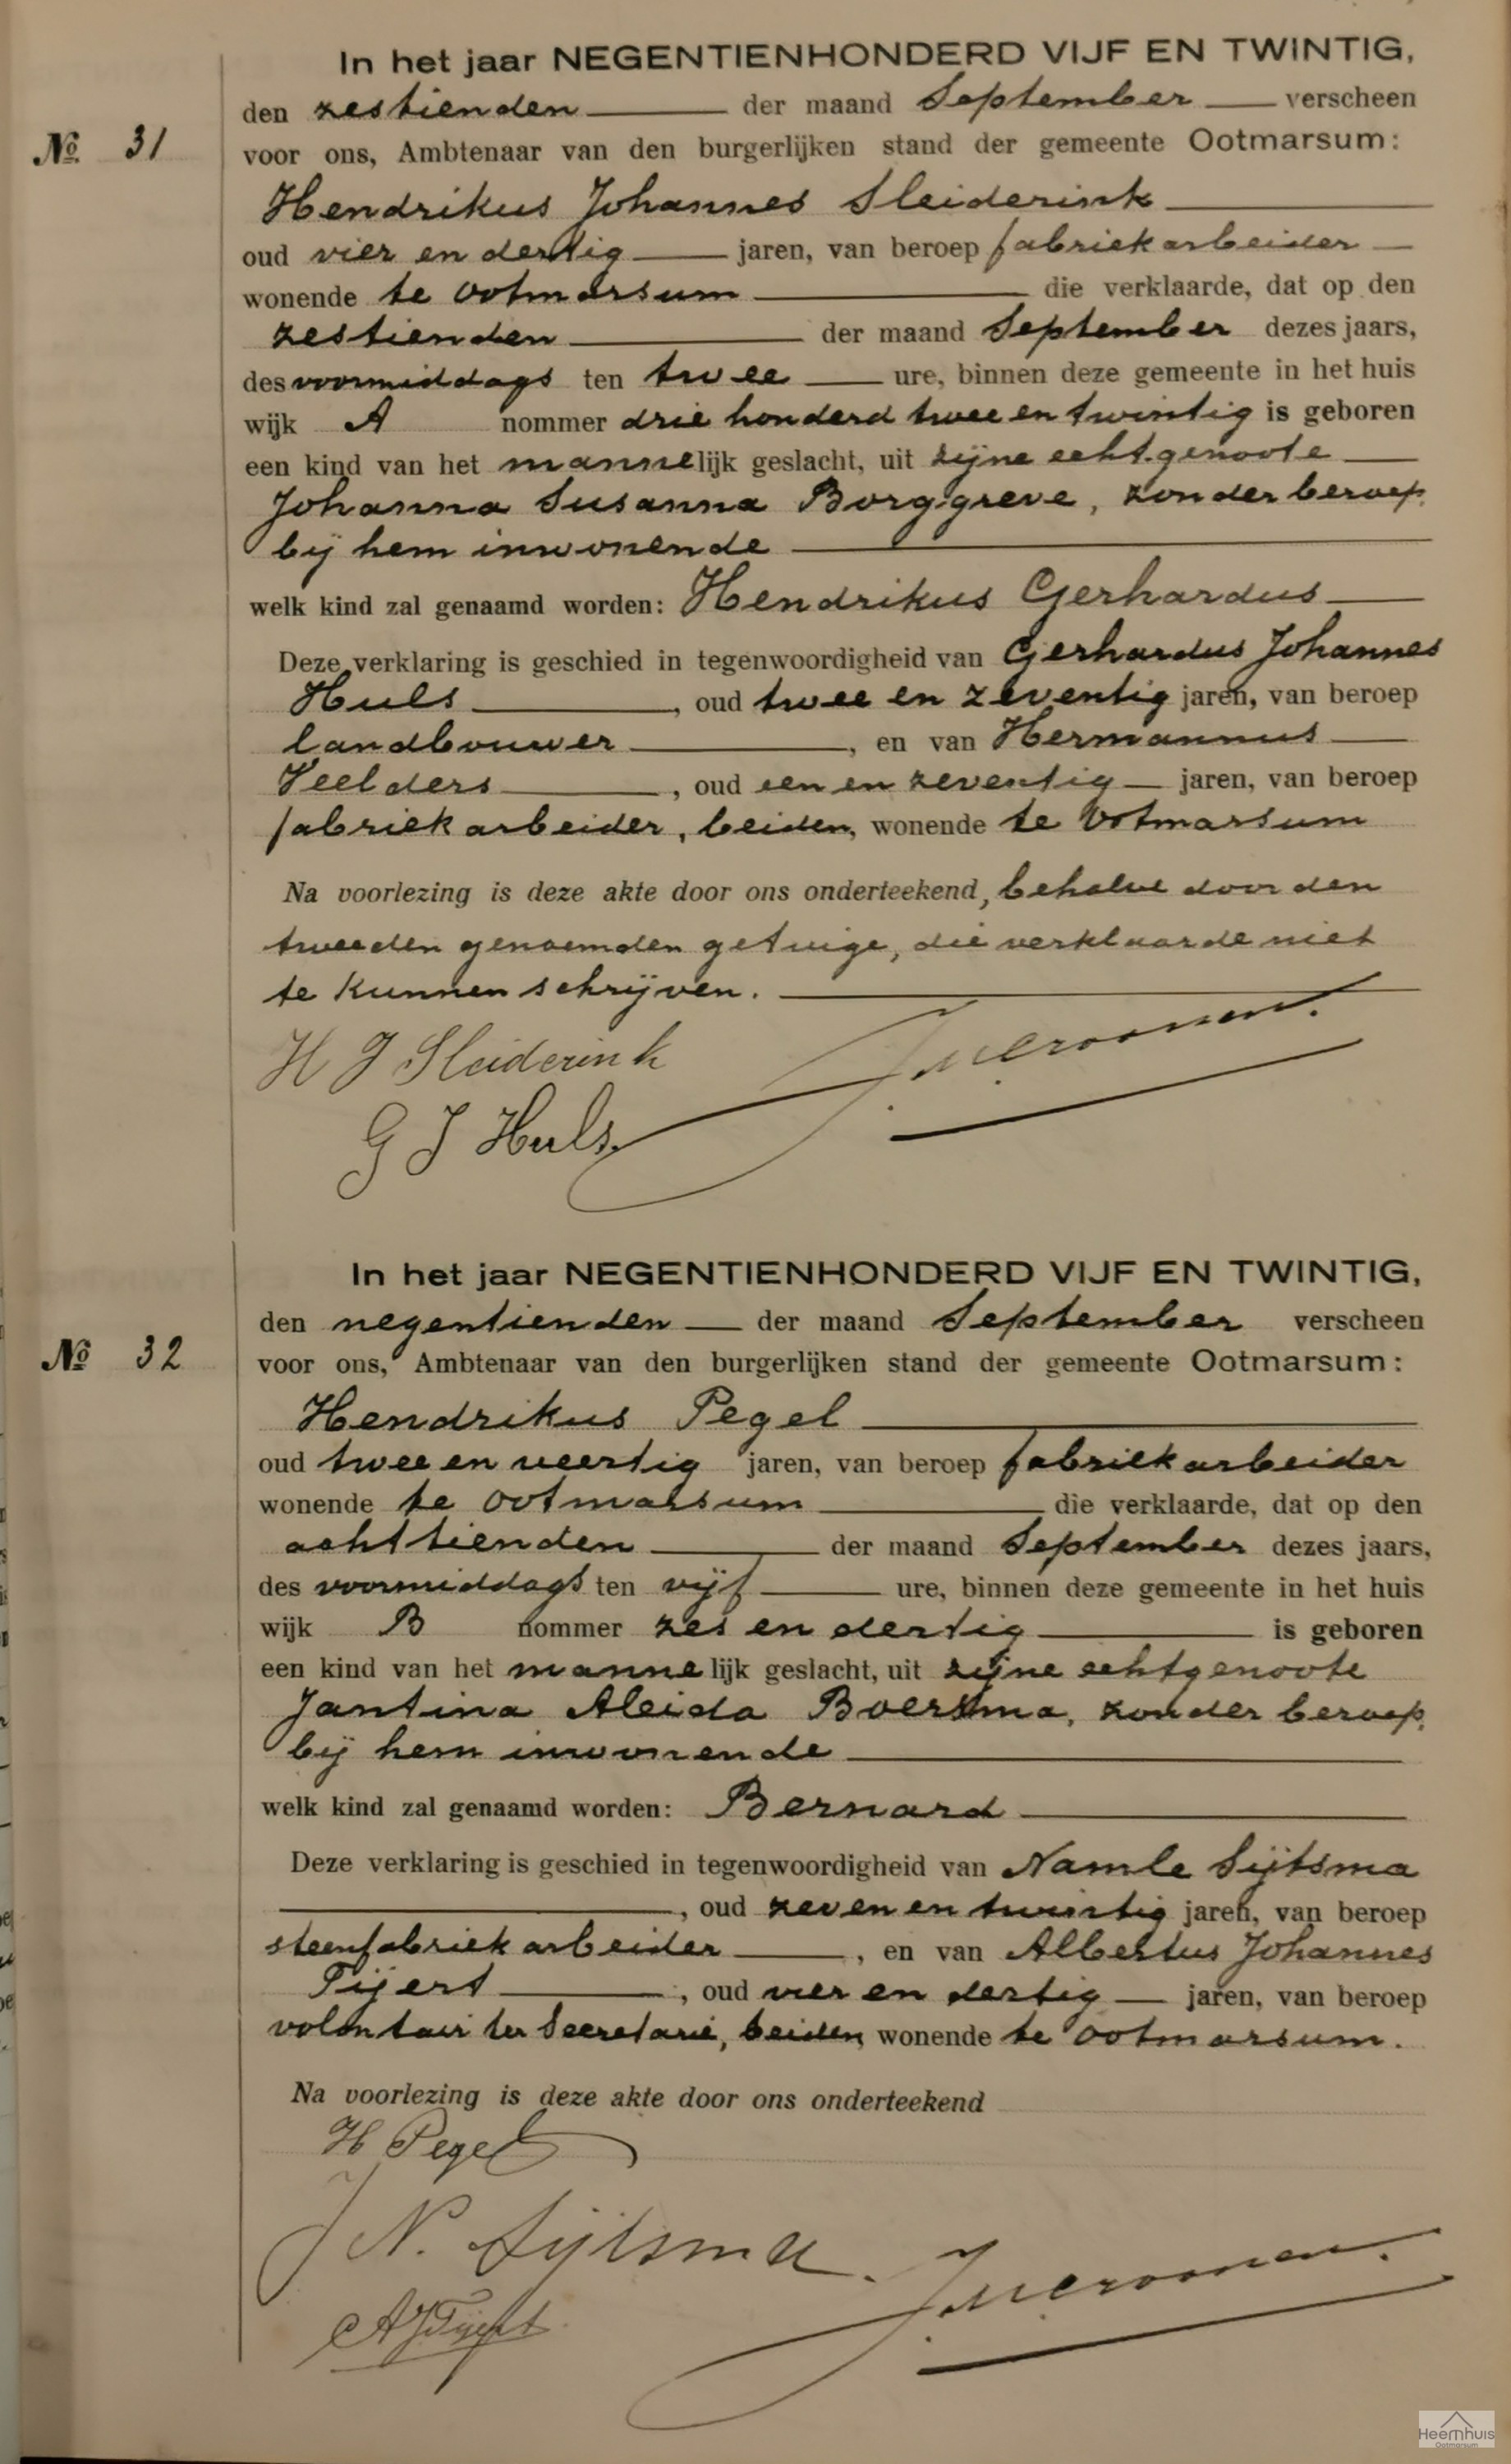 In het jaar NEGENTIENHONDERD VIJF EN TWINTIG,
den zestienden der maand September verscheen
No. 31
voor ons, Ambtenaar van den burgerlijken stand der gemeente Ootmarsum:
Hendrikus Johannes Sleiderink
oud vier en dertig jaren, van beroep fabriekarbeider
wonende te Ootmarsum die verklaarde, dat op den
zestienden der maand September dezes jaars,
des voormiddags ten twee ure, binnen deze gemeente in het huis
wijk A nommer drie honderd twee en twintig is geboren
een kind van het mannelijk geslacht, uit zijne echtgenoote
Johanna Susanna Borggreve, zonder beroep,
bij hem inwonende
welk kind zal genaamd worden: Hendrikus Gerhardus
Deze verklaring is geschied in tegenwoordigheid van Gerhardus Johannes
Huls, oud twee en zeventig jaren, van beroep
landbouwer, en van Hermannus
Veelders, oud een en zeventig jaren, van beroep
fabriekarbeider, beiden, wonende te Ootmarsum
Na voorlezing is deze akte door ons onderteekend, behalve door den
tweeden genoemden getuige, die verklaarde niet
te kunnen schrijven.
H J Sleiderink
G J Huls
In het jaar NEGENTIENHONDERD VIJF EN TWINTIG,
den negentienden der maand September verscheen
No 32
voor ons, Ambtenaar van den burgerlijken stand der gemeente Ootmarsum:
Hendrikus Pegel
oud twee en veertig jaren, van beroep fabriekarbeider
wonende te Ootmarsum die verklaarde, dat op den
achttienden der maand September dezes jaars,
des voormiddags ten vijf ure, binnen deze gemeente in het huis
wijk B nommer zes en dertig is geboren
een kind van het mannelijk geslacht, uit zijne echtgenoote
Jantina Aleida Boersma, zonder beroep,
bij hem inwonende
welk kind zal genaamd worden: Bernard
Deze verklaring is geschied in tegenwoordigheid van Namle Sijtsma
, oud zeven en twintig jaren, van beroep
steenfabriekarbeider, en van Albertus Johannes
Tijert, oud vier en dertig jaren, van beroep
volontair ter Secretarie, beiden, wonende te Ootmarsum.
Na voorlezing is deze akte door ons onderteekend
H Pegel
N. Sijtsma.
AJTijert
Heemhuis
Ootmarsum